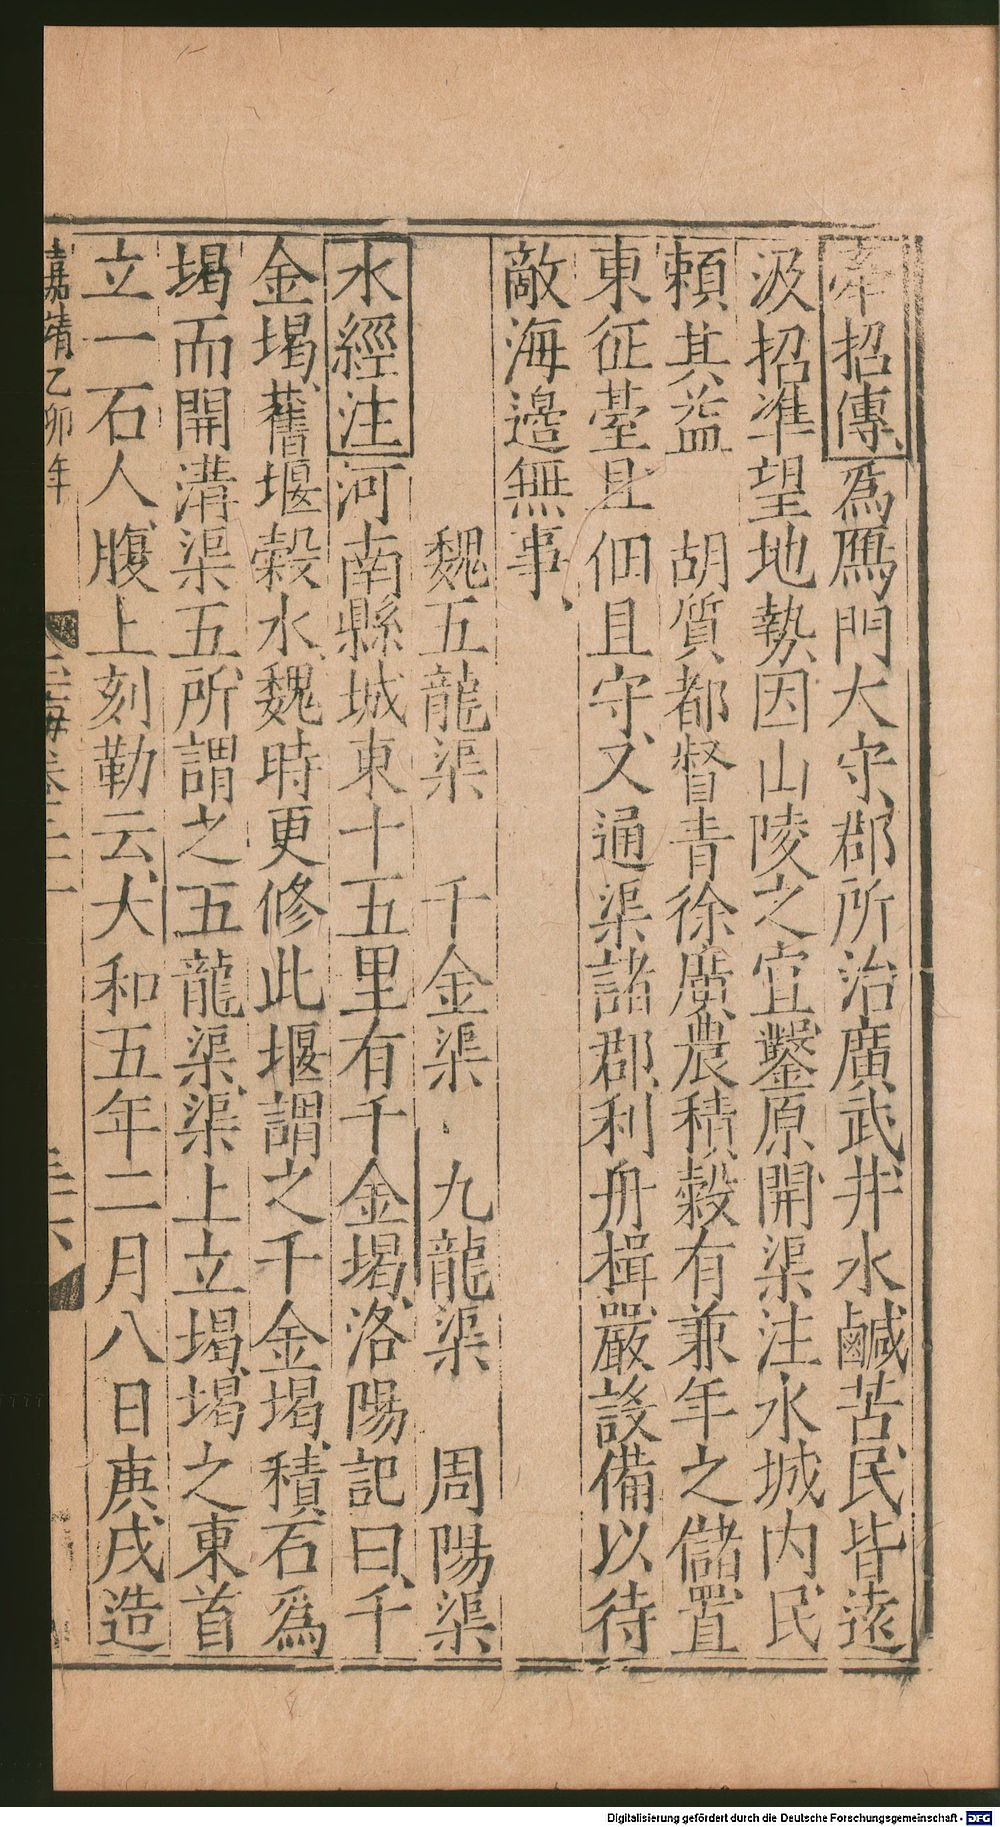 牽招傳爲鴈門大守郡所治廣武井水鹹苦民皆遠
汲招準望地勢因山陵之宜鑿原開渠注水城内民
賴其益　胡質都督青徐廣農積穀有兼年之儲置
東征臺且佃且守又通渠諸郡利舟楫嚴設備以待
敵海邉無事
魏五龍渠　千金渠　九龍渠　周陽渠
水經注河南縣城東十五里有千金堨洛陽記曰千
金堨舊堰榖水魏時更修此堰謂之千金堨積石爲
堨而開溝渠五所謂之五龍渠渠上立堨堨之東首
立一石人腹上刻勒云大和五年二月八日庚戌造
嘉靖乙卯年　玉海卷二十一　三十六
Digitalisierung gefördert durch die Deutsche Forschungsgemeinschaft - DFG